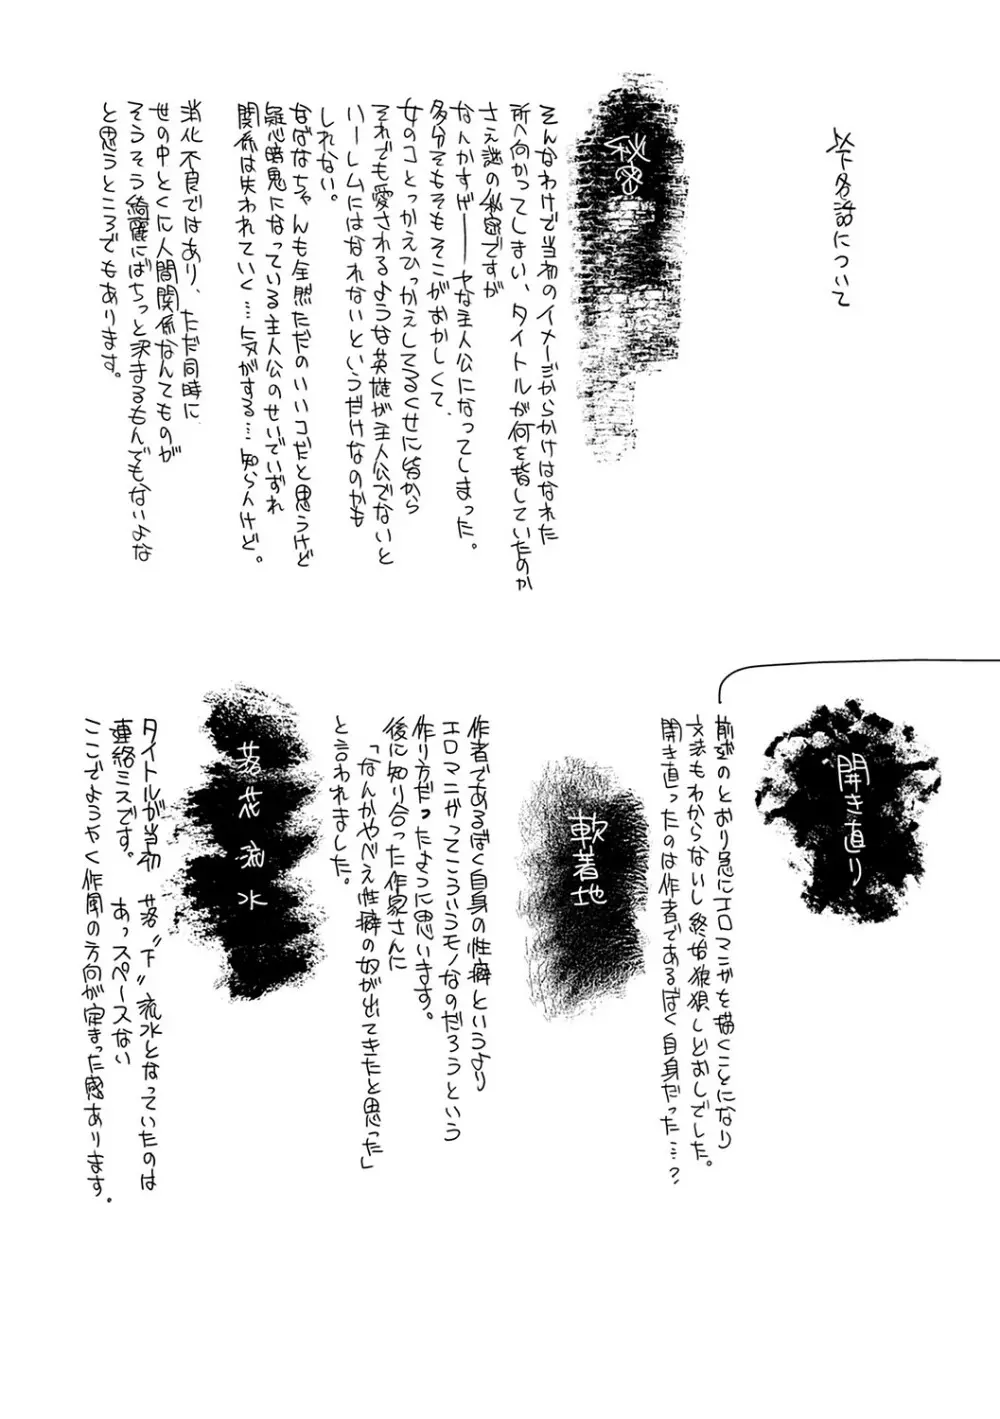 以下各話について
秘密
そんなわけで当初のイメージからかけはなれた
所へ向かってしまい、タイトルが何を指していたのか
さえ謎の秘密ですが
なんかすげーーーヤな主人公になってしまった。
多分そもそもそこがおかしくて、
女のコとっかえひっかえしてるくせに皆から
それでも愛されるような英雄が主人公でないと
ハーレムにはなれないというだけなのかも
しれない。
なばなちゃんも全然ただのいいコだと思うけど
疑心暗鬼になっている主人公のせいでいずれ
関係は失われていく…予感がする…知らんけど。
消化不良ではあり、ただ同時に
世の中とくに人間関係なんてものが
そうそう綺麗にぱちっと決まるもんでもないよな
と思うところでもあります。
開き直り
前述のとおり急にエロマンガを描くことになり
文法もわからないし終始狼狽しどおしでした。
開き直ったのは作者であるぼく自身だった…?
軟着地
作者であるぼく自身の性癖というより
エロマンガってこういうモノなのだろうという
作り方だったように思います。
後に知り合った作家さんに
「なんかやべえ性癖の奴が出てきたと思った」
と言われました。
落花流水
タイトルが当初 落〝下〟流水となっていたのは
連絡ミスです。 あっスペースない
ここでようやく作風の方向が定まった感あります。